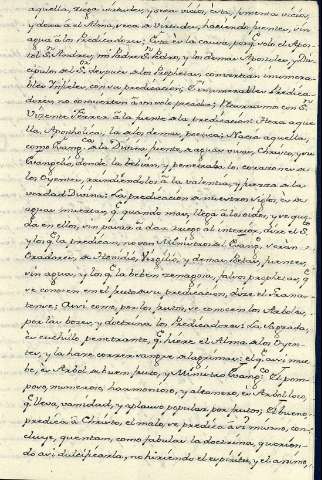 aquella, riega virtudes, y seca vicios, esta, fomenta vicios,
y deja á el Alma, seca de Virtudes, haciendo fuentes, sin
agua á los Predicadores. Esta es la causa, porq. solo el Apos-
tol Sn. Andres, mi Padre Sn. Pedro, y los demas Apostoles, y Dis-
cipulos del Sr. despues de los Prophetas, convertian innumera-
bles Infieles, con una predicacion; E innumerables Predica-
dores, no convierten á un solo pecador; Recurramos con Sn.
Vicente Ferrer á la fuente de la predicacion: Hera aque-
lla, Apostholica; la de los demas, poetica; Nacia aquella,
como Evangca. de la Divina fuente de aguas vivas, Christo, y su
Evangelio, donde la bebian, y penetraba los corazones de
los Oyentes, rindiendolos á la valentia, y fuerza de la
verdad Divina; La predicacion de nuestro siglo, es de
aguas muertas, q. quando mas, llega á los oidos, y se que-
da en ellos, sin pasar á dar riego al interior, dice el Sto.
y los q. la predican, no son Ministros del Evango. seran
Oradores, de Ovidio, Virgilio, y demas Poetas, fuentes,
sin agua, y los q. la beben
se conocen en el fruto de su predicacion, dice el
Assi como, por los frutos, se conocen los Arboles,
por las bozes, y doctrina los Predicadores: La Sagrada,
es cuchillo penetrante, q. hiere el Alma de los Oyen-
tes, y la hace correr sangre de lagrimas; el q. assi, mue-
be, es Arbol de buen fruto, y Ministro Evangco. El pom-
poso, numeroso, harmonioso, y altanero, es Arbol loco,
q. lleva, vanidad, y aplauso popular por frutos; El bueno,
predica á Christo, el malo, se predica á si mismo, con-
cluye, quentan, como fabulas la doctrina, querien-
do assi dulcificarla, no hiriendo el espiritu, y el animo,